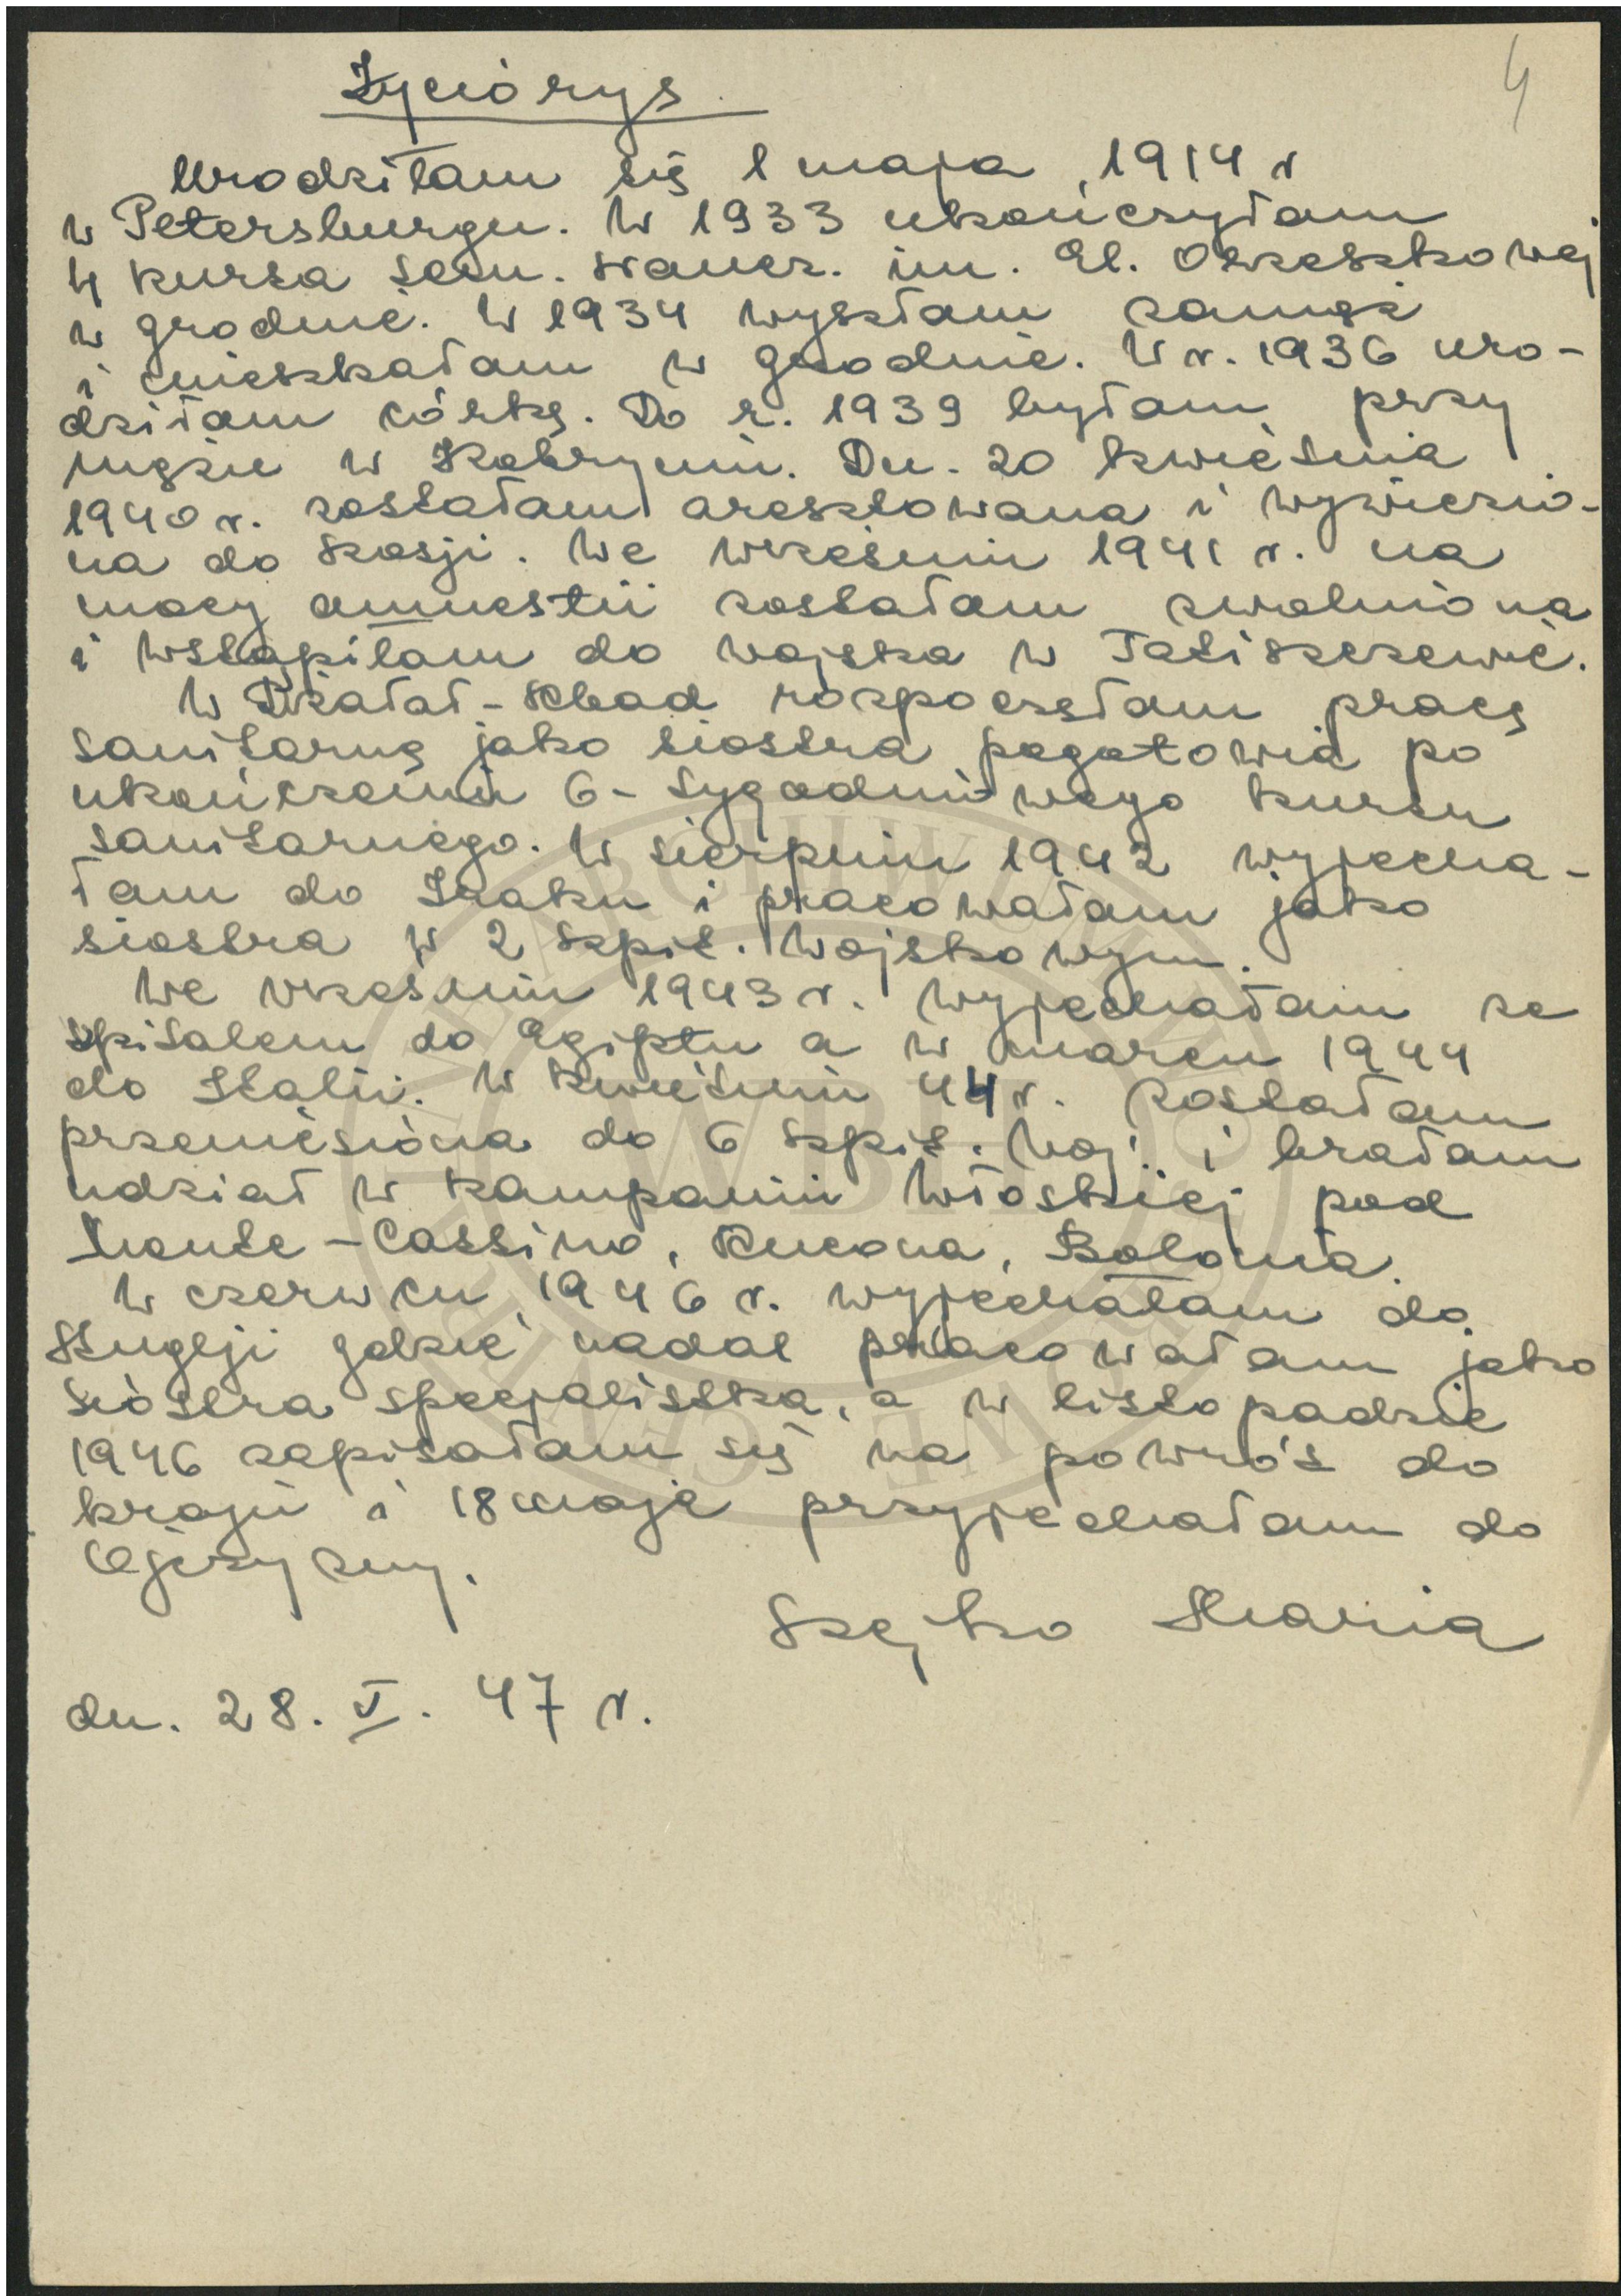 4
Życiorys
Urodziłam się 1 maja 1914 r
w Petersburgu. W 1933 ukończyłam
4 kursa sem. naucz. im. El. Orzeszkowej
w Grodnie. W 1934 wyszłam zamąż
i mieszkałam w Grodnie. W r. 1936 uro-
dziłam córkę. Do r. 1939 byłam przy
mężu w Kobryniu. Dn. 20 kwietnia
1940 r. zostałam aresztowana i wywiezio-
na do Rosji. We wrześniu 1941 r. na
mocy amnestii zostałam zwolniona
i wstąpiłam do wojska w Tatiszczewie.
W Dżałał-Abad rozpoczęłam pracę
sanitarną jako siostra pogotowia po
ukończeniu 6-tygodniowego kursu
sanitarnego. W sierpniu 1942 wyjecha-
łam do Iraku i pracowałam jako
siostra w 2 szpit. wojskowym.
We wrześniu 1943 r. wyjechałam ze
szpitalem do Egiptu a w marcu 1944
do Italii. W kwietniu 44 r. zostałam
przeniesiona do 6 szpit. woj. i brałam
udział w kampanii włoskiej pod
Monte-Cassino, Ancona, Bolonia.
W czerwcu 1946 r. wyjechałam do
Anglji gdzie nadal pracowałam jako
siostra specjalistka, a w listopadzie
1946 zapisałam się na powrót do
kraju i 18 maja przyjechałam do
Ojczyzny.
Szejko Maria
dn. 28. V. 47 r.